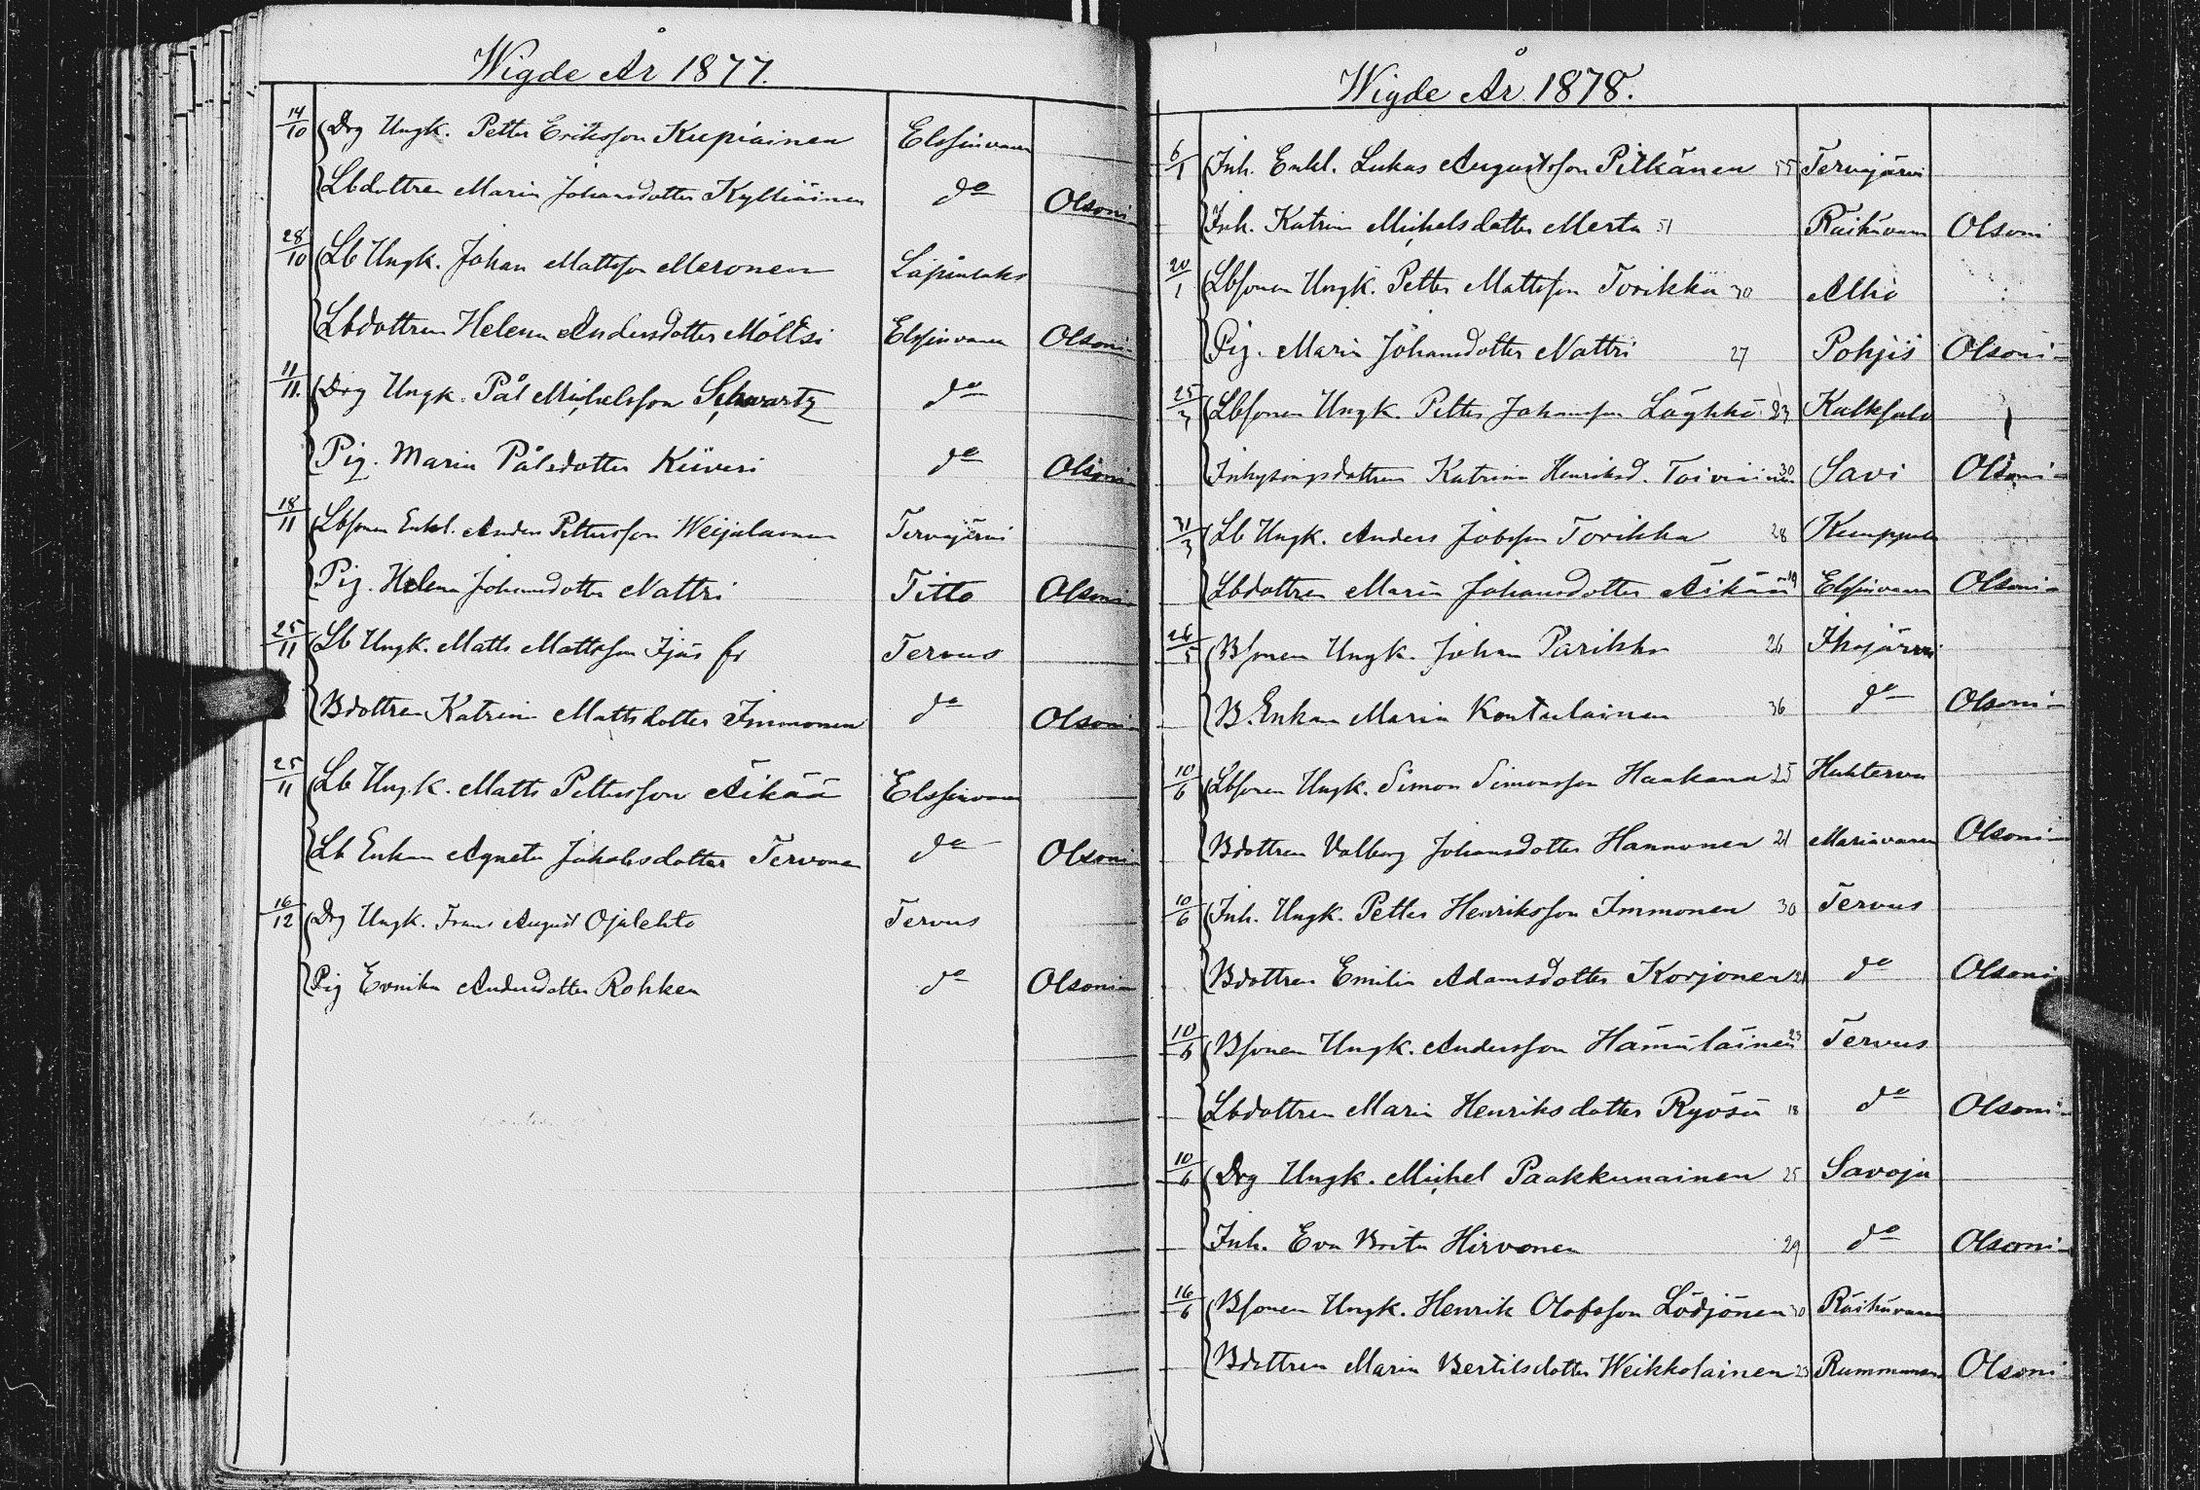 Wigde År 1877.
14/10 Drg Ungk. Petter Eriksson Kupiainen Elssinvaara
Lbdottren Maria Johansdotter Kylliäinen do Olsoni
28/10 Lb Ungk. Johan Mattsson Meronen Lapinlaks
Lbdottren Helena Andersdotter Möltsi Elssinvaara Olsoni
11/11. Drg Ungk. Pål Michelsson Schwartz do
Pig. Maria Pålsdotter Kiiveri do Olsoni
18/11 Lbsonen Enkl. Anders Pettersson Weijalainen Tervajärvi
Pig. Helena Johansdotter Nattri Titto Olsoni
25/11 Lb Ungk. Matts Mattsson Ijäs Tervus
Bdottren Katrina Mattsdotter Immonen do Olsoni
25/11 Lb Ungk. Matts Pettersson Äikää Elssinvaara
Lb Enkan Agneta Jakobsdotter Tervonen do Olsoni
16/12 Drg Ungk. Frans August Ojalehto Tervus
Pig Evnika Andersdotter Rohken do Olsoni
Wigde År 1878.
6/1 Inh. Enkl. Lukas Augustsson Pitkänen 55 Tervajärvi
Inh. Katrina Michelsdotter Merta 51 Raihävaara Olsoni
20/1 Lbsonen Ungk. Petter Mattsson Torikka 30 Alho
Pig. Maria Johansdotter Nattri 27 Pohjis Olsoni
25/3 Lbsonen Ungk. Petter Johansson Läyhkä 23 Kalksalo
Inhysingsdottren Katrina Henriksd. Toiviainen 30 Savi Olsoni
31/3 Lb Ungk. Anders Jobsson Torikka 28 Kumppula
Lbdottren Maria Johansdotter Äikää 19 Elssinvaara Olsoni
26/5 Bsonen Ungk. Johan Parikka 26 Ihojärvi
B. Enkan Maria Kontulainen 36 do Olsoni
10/6 Lbsonen Ungk. Simon Simonsson Haakana 25 Huhterva
Bdottren Valborg Johansdotter Hannonen 21 Mariavaara Olsoni
10/6 Inh. Ungk. Petter Henriksson Immonen 30 Tervus
Bdottren Emilia Adamsdotter Korjonen 21 do Olsoni
10/6 Bsonen Ungk. Andersson Hämäläinen 23 Tervus
Lbdottren Maria Henriksdotter Ryösä 18 do Olsoni
10/6 Drg Ungk. Michel Paakkunainen 25 Savoja
Inh. Eva Brita Hirvonen 29 do Olsoni
16/6 Bsonen Ungk. Henrik Olofsson Lödjönen 30 Räihävaara
Bdottren Maria Bertilsdotter Weikkolainen 23 Rummunsuo Olsoni